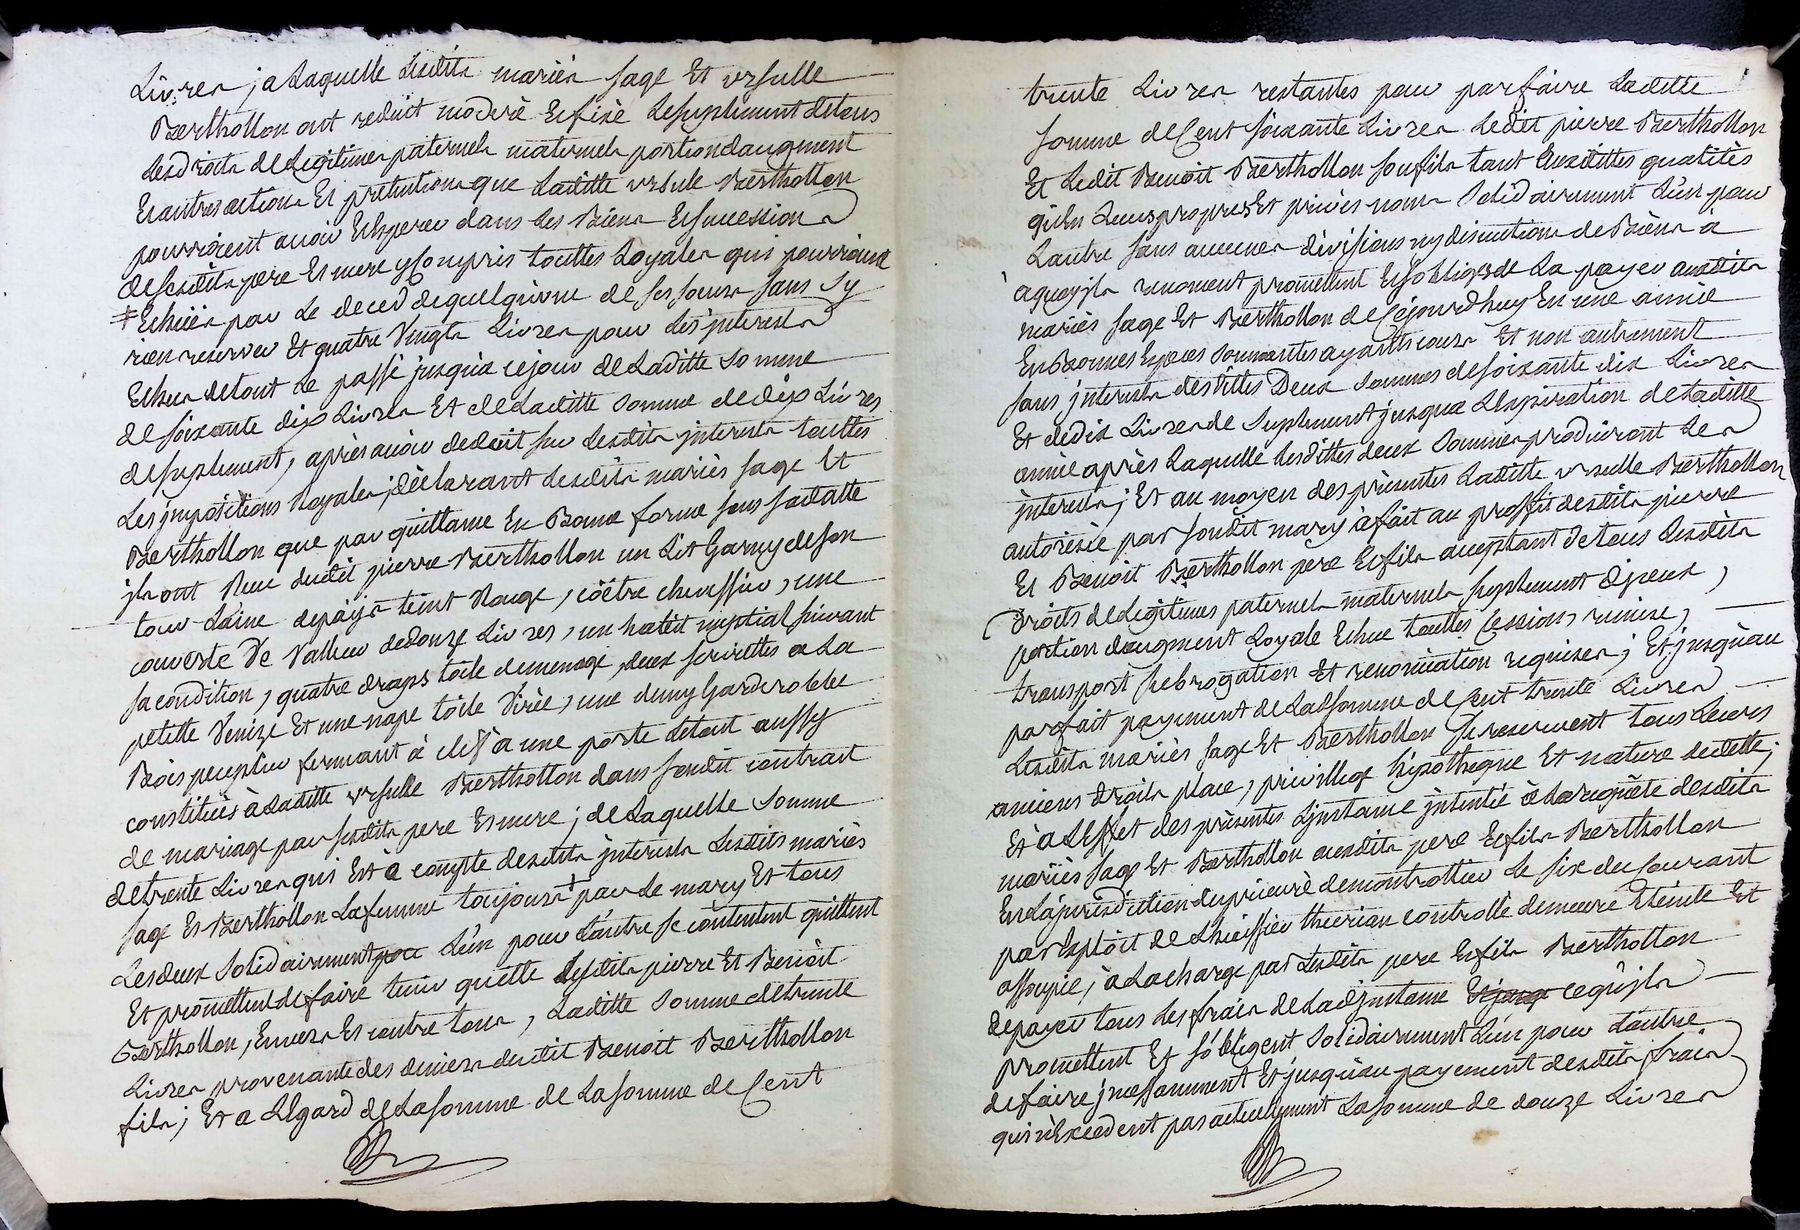 Livres ; a Laquelle Lesdits mariés sage Et ursulle
Berthollon ont reduit moderé Et fixé Lesuplement detous
Lesdroits de Legitimes paternels maternels portiondaugment
Et autres actions Et pretentions que Laditte ursule Berthollon
pourroient avoir Et Esperer dans Les Biens Et succession
desesdits pere Et mere y Compris touttes Loyales qui pourroient
Echües par Le deced dequelquune de ses soeurs sans sy
rien reserver Et quatre Vingts Livres pour Les jnterests
Echus detout Le passé jusqua cejour de Laditte somme
de soixante dix Livres Et de Laditte somme de dix Livres
desuplement, après avoir deduit sur Lesdits jnterests touttes
Les jmpositions Royales ; déclarant Lesdits mariés sage Et
Berthollon que par quittance En Bonne forme sous saditte
jls ont Reçu dudit pierre Berthollon un Lit Garny deson
tour Laine depäys teint Rouge, coëtre chevessier, une
couverte De Valleur dedouze Livres, un habit nuptial suivant
sa condition, quatre draps toile demenage, deux serviettes a La
petitte Venize Et une nape toile Virée, une demy Garderobbe
Bois peuplier fermant à clef a une porte Letout aussy
constitués à Laditte ursulle Berthollon dans sondit contrat
de mariage par sesdits pere Et mere ; de Laquelle somme
detrente Livres qui Est à compte desdits jnterests Lesdits mariés
sage Et Berthollon Lafemme toujours par Le mary Et tous
Lesdeux solidairement L'un pour L'autre se contentent quittent
Et promettent de faire tenir quitte Lesdits pierre Et Benoit
Berthollon, Envers Et contre tous, Laditte somme detrente
Livres provenante des deniers dudit Benoit Berthollon
fils ; Et a L'Egard de La somme de La somme de Cent
trente Livres restantes pour parfaire Laditte
somme de Cent soixante Livres Ledit pierre Berthollon
Et Ledit Benoit Berthollon sonfils tant Ensdittes qualités
qu'En Leurs propres Et privés noms solidairement L'un pour
L'autre sans aucunes divisions ny discutions de Biens à
àquoy jls renoncent promettent Et sobligesde La payer ausdits
mariés sage Et Berthollon de cejourdhuy En une année
En Bonnes Especes sonnantes ayants cours Et non autrement
sans jnterests desdittes Deux sommes de soixante dix Livres
Et dedix Livres de suplement jusqua L'Expiration de Laditte
année après Laquelle Lesdittes deux sommes produiront Les
jnterests ; Et au moyen des présentes Laditte ursulle Berthollon
autorisée par sondit mary à fait au proffit desdits pierre
Et Benoit Berthollon pere Et fils acceptant De tous Lesdits
Droits de Legitimes paternels maternels suplement d'jceux,
portion daugment Loyale Echue touttes Cession, remise,
transport subrogation Et renonciation requises ; Et jusquau
parfait payement de Ladsomme de Cent trente Livres
Lesdits mariés sage Et Berthollon se reservent tous Leurs
anciens droits place, privillege hipotheque Et nature de dette ;
Et à L'Effet des présentes Ljnstance jntentée à La requête desdits
mariés sage Et Berthollon ausdits pere Et fils Berthollon
En Lajurisdiction duprieuré demontrottier Le six du Courant
par Exploit de L'huissier therian controllé demeure Eteinte Et
assoupie, à Lacharge par Lesdits pere Et fils Berthollon
depayer tous Les frais de Ladjnstance cequ'jls
promettent Et s'obligent solidairement L'un pour L'autre
de faire jncessamment Et jusquàu payement desdits frais
qui n'Excedent pas actuelement La somme de douze Livres